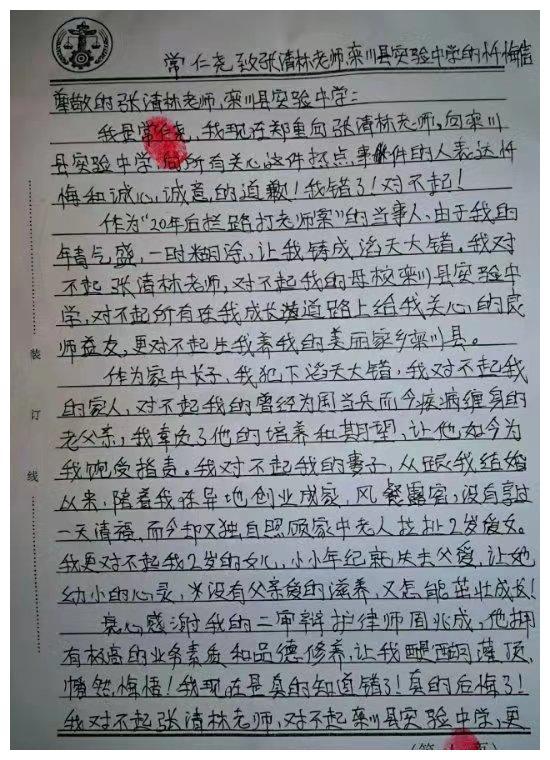 常仁尧致张清林老师,栾川县实验中学的忏悔信
尊敬的张清林老师,栾川县实验中学:
我是常仁尧,我现在郑重向张清林老师,向栾川
县实验中学,向所有关心这件起点事件的人表达忏
悔和诚心诚意的道歉!我错了!对不起!
作为“20年后拦路打老师案”的当事人、由于我的
年青气盛,一时糊涂,让我铸成滔天大错。我对
不起张清林老师,对不起我的母校栾川县实验中
学,对不起所有在我成长道路上给我关心的良
师益友,更对不起生我养我的美丽家乡栾川县。
作为家中长子,我犯下滔天大错,我对不起我
的家人,对不起我的曾经为国当兵而今疾病缠身的
老父亲,我辜负了他的培养和期望,让他如今为
我饱受指责。我对不起我的妻子,从跟我结婚
以来,陪着我在异地创业成家,风餐露宿,没有享过
一天清福,而今却又独自照顾家中老人拉扯2岁爱女。
我更对不起我2岁的女儿,小小年纪就失去父爱,让她
幼小的心灵,没有父亲爱的滋养,又怎能茁壮成长!
衷心感谢我的二审辩护律师周兆成,他拥
有极高的业务素质和品德修养,让我醍醐灌顶,
幡然悔悟!我现在是真的知道错了!真的后悔了!
我对不起张清林老师,对不起栾川县实验中学,更
装
订
线